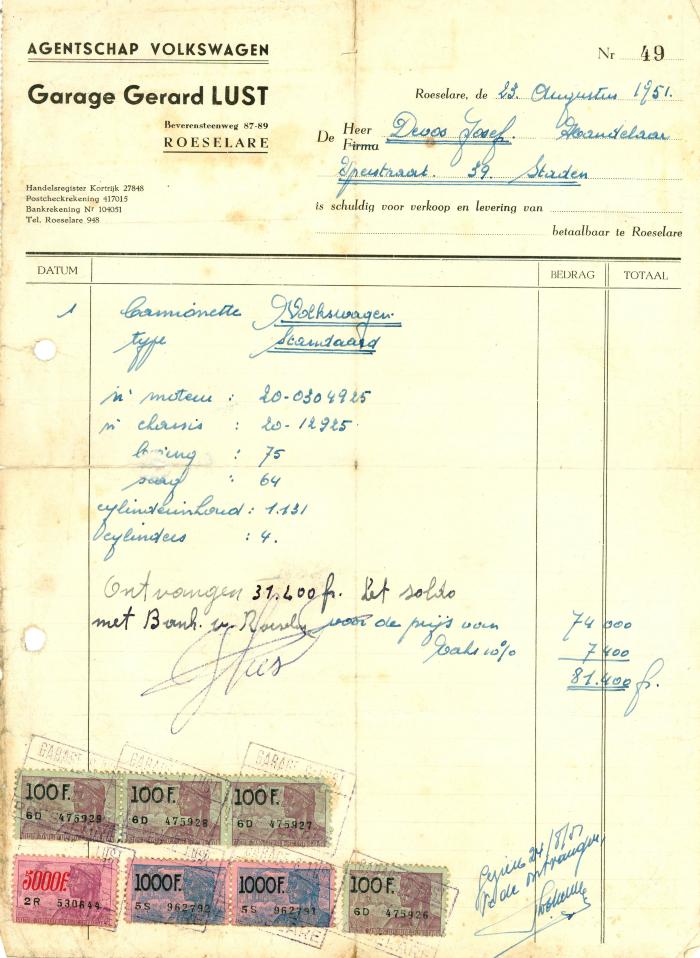 AGENTSCHAP VOLKSWAGEN
Nr 49
Garage Gerard LUST
Roeselare, de 23 Augustus 1951.
Beverensteenweg 87-89
ROESELARE
De Heer Devos Josef. Handelaar
Firma
Yperstraat. 39. Staden
Handelsregister Kortrijk 27848
Postcheckrekening 417015
Bankrekening Nr 104051
Tel. Roeselare 948
is schuldig voor verkoop en levering van
betaalbaar te Roeselare
DATUM BEDRAG TOTAAL
1 Camionette Volkswagen
type Standaard
n' moteur : 20-0304925
n' chassis : 20-12925
: 75
: 64
cylinderinhoud : 1.131
cylinders : 4.
Ontvangen 31.400 fr. Het soldo
met Bank. v. Roeselare voor de prijs van 74 000
Taks 10% 7 400
81.400 fr.
100F. 100F. 100F.
6D 475929 6D 475928 6D 475927
5000F. 1000F. 1000F. 100F.
2R 530644 5S 962792 5S 962791 6D 475926